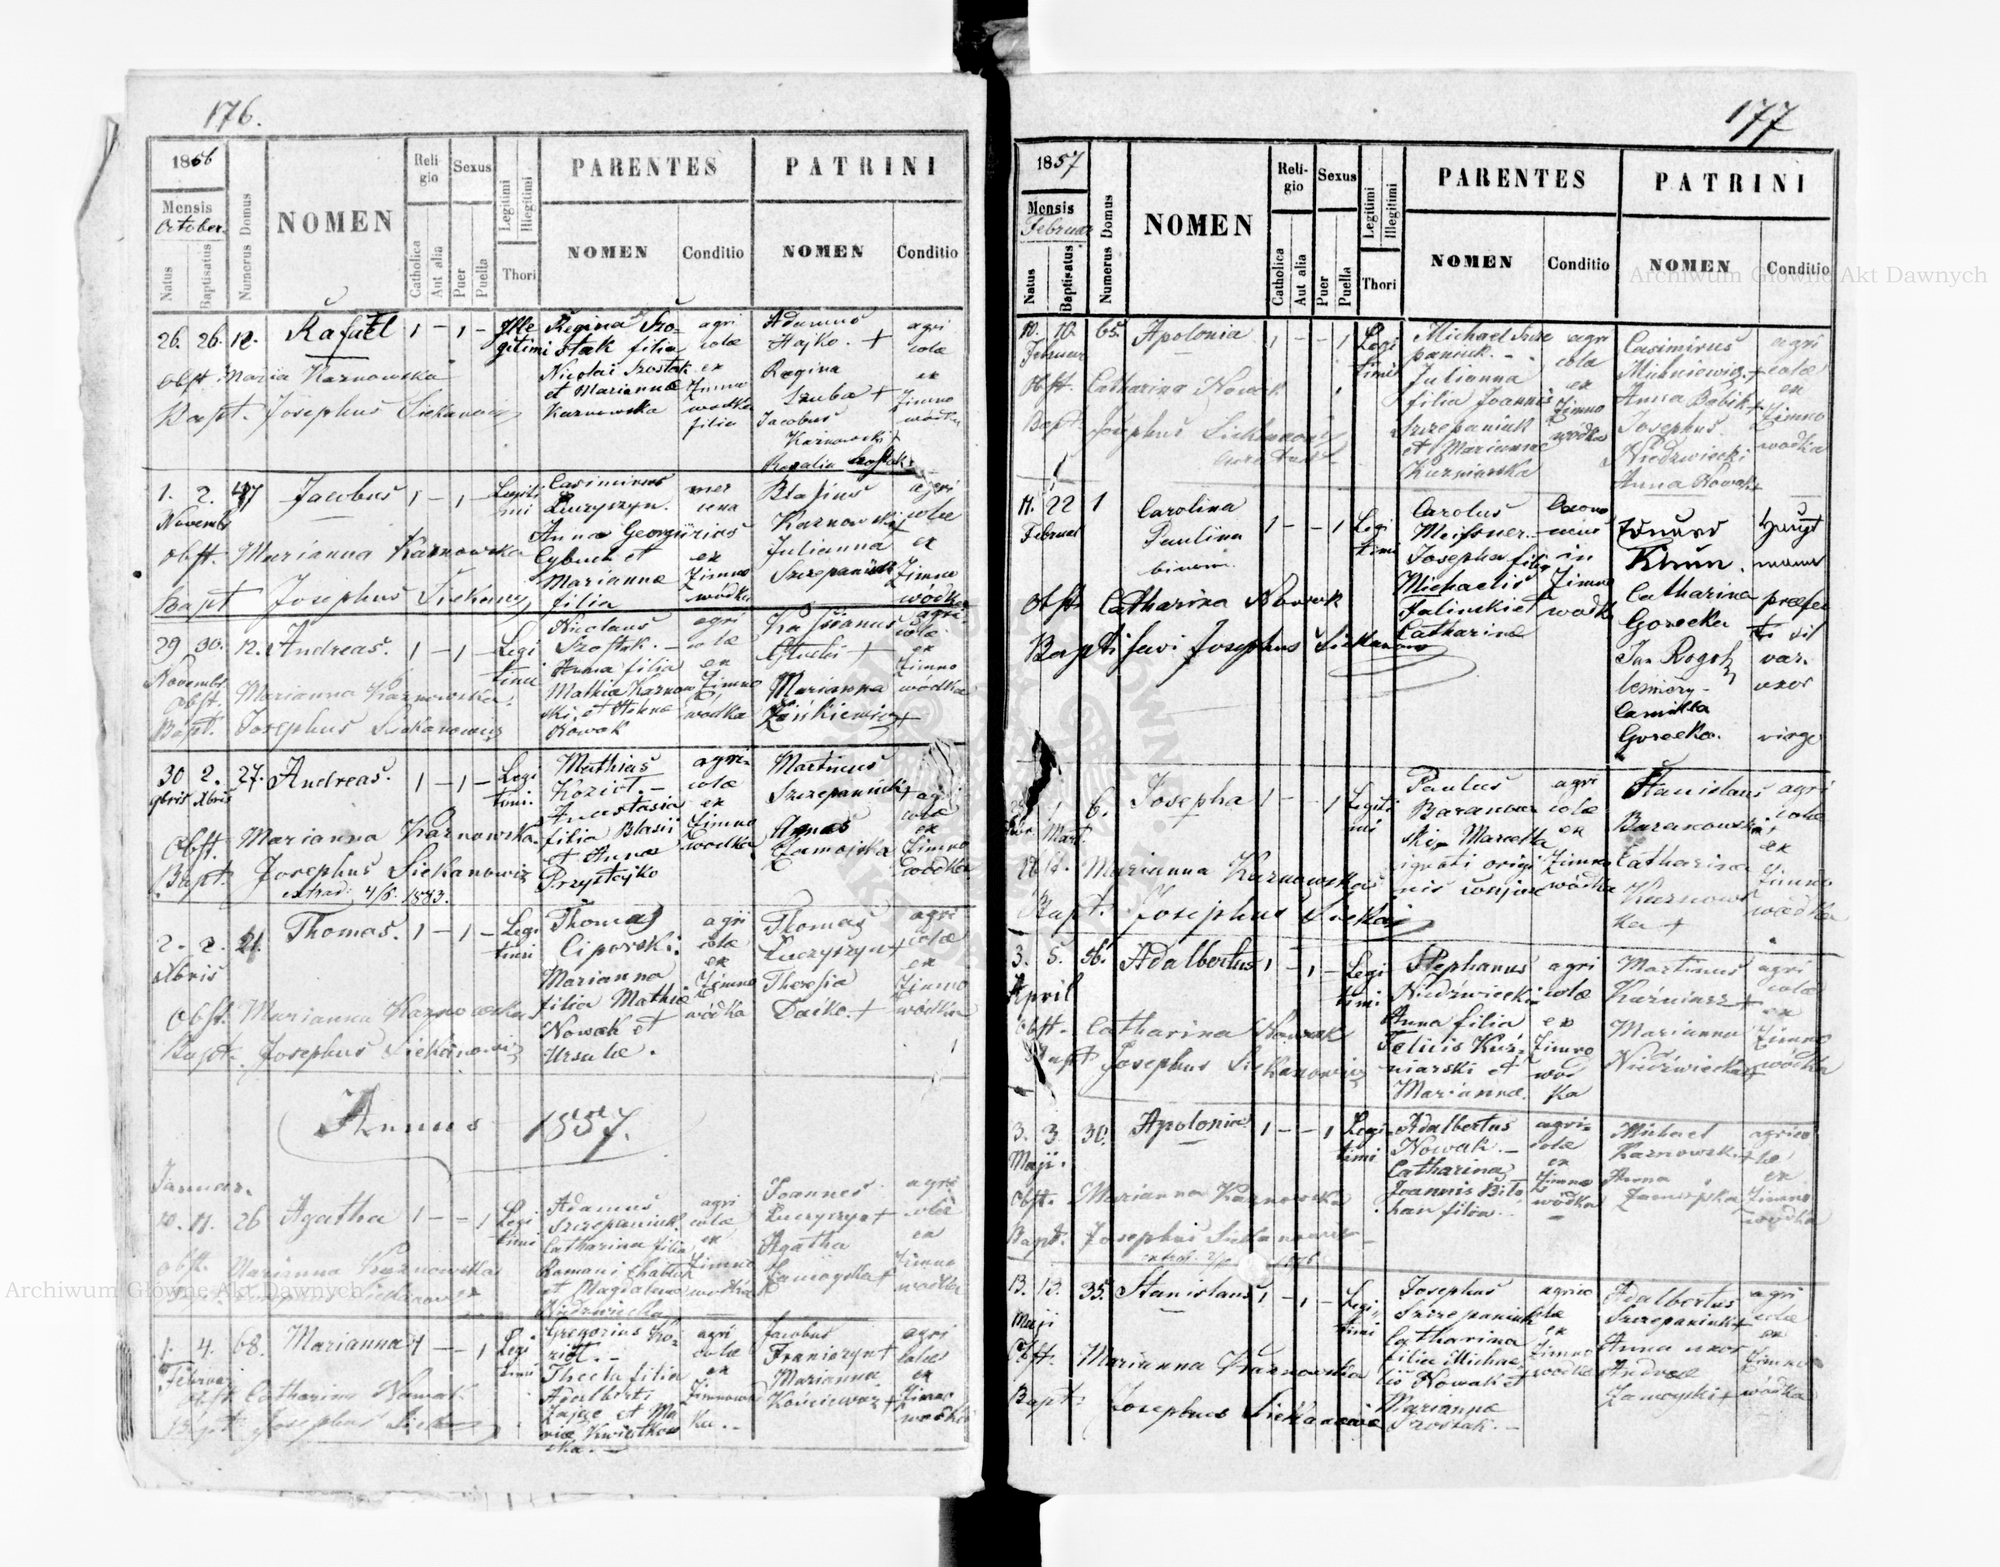 176.
1856
Mensis
October.
Natus
Baptisatus
Numerus Domus
NOMEN
Religio
Catholica
Aut alia
Sexus
Puer
Puella
Legitimi
Illegitimi
Thori
PARENTES
NOMEN
Conditio
PATRINI
NOMEN
Conditio
26. 26. 12. Rafael 1 - 1 -
Ille
gitimi
Regina Szo-
stak filia
Nicolai Szostak
et Marianna
Karnowska
agri
colæ
ex
Zimno
wodka
filia
Adamus
Hajko. +
Regina
Szuba +
Jacobus
Karnowski +
Rozalia Szostak
agri
colæ
ex
Zimno
wódka
Obst. Maria Karnowska
Bapt. Josephus Siekanowiz
1. 2. 47 Jacobus 1 - 1 -
Novembr
Legiti
mi
Casimirus
Luczyszyn.
Anna Georgii
Cybuch et
Marianna
filia
ex
Zimno
wodka
Blasius
Karnowski +
Julianna
Szczepaniak
agri
colæ
ex
Zimno
wodka
Obst. Marianna Karnowska
Bapt Josephus Siekanowiz
29 30. 12. Andreas. 1 - 1 -
Novembr
Legi
timi
Nicolaus
Szostak. -
Anna filia
Mathiæ Karnow
ski et Helenæ
Nowak
agri
colæ
ex
Zimno
wodka
Marianna
agri
colæ
ex
Zimno
wódka
Obst. Marianna Karnowska.
Bapt. Josephus Siekanowiz
30 2. 27. Andreas. 1 - 1 -
9bris Xbris
Legi
timi.
Mathias
Koziol. -
Anastasia
filia Blasii
et Annæ
Przystajko
agri-
colæ
ex
Zimno
wodka
Martinus
Szczepaniak +
Agnes
Zamojska
agri
colæ
ex
Zimno
wodka
Obst. Marianna Karnowska.
Bapt. Josephus Siekanowiz
extrad: 4/6. 1883.
2. 2. 21. Thomas. 1 - 1 -
Xbris
Legi
timi
Thomas
Ciporski.
Marianna
filia Mathiæ
Nowak et
Ursulæ.
agri
colæ
ex
Zimno
wódka
Thomas
Luczyszyn +
Theresia
Dacko. +
agri
colæ
ex
Zimno
wódka
Obst. Marianna Karnowska
Bapt. Josephus Siekanowiz
Annus 1857.
Januar.
10. 11. 26 Agatha 1 - - 1
Legi
timi
Adamus
Szczepaniak.
Catharina filia
Romani
et Magdalena
Niedzwiecka
agri
colæ
ex
Zimno
wodka
Joannes
Luczyszyn +
Agatha
Zamoyska +
agri
colæ
ex
Zimno
wodka
Obst. Marianna Karnowska
1. 4. 68. Marianna 1 - - 1
Februar
Legi
timi
Gregorius Ko-
ziol. -
Thecla filia
Adalberti
Zając et Ma
riæ Kwiatkow
ska. -
agri
colæ
ex
Zimnowod
ka. -
Jacobus
Franiszyn +
Marianna
Kościewicz +
agri
colæ
ex
Zimno
wodka
Obst. Catharina Nowak
Bapt Josephus
177
1857
Mensis
Februar
Natus
Baptisatus
Numerus Domus
NOMEN
Religio
Catholica
Aut alia
Sexus
Puer
Puella
Legitimi
Illegitimi
Thori
PARENTES
NOMEN
Conditio
PATRINI
NOMEN
Conditio
10. 10. 65. Apolonia 1 - - 1
Februar
Legi
timi
Michael Szcze
paniuk. -
Julianna
filia Joannis
Szczepaniak
et Marianna
Kuzniarska
agri
cola
ex
Zimno
wodka
Casimirus
Michniewicz +
Anna Bobik +
Josephus
Niedzwiecki
Anna Nowak
agri
colæ
ex
Zimno
wodka
Obst. Catharina Nowak
Bapt. Josephus Siekanowiz
11. 22 1 Carolina
Paulina
binom.
1 - - 1
Februar
Legi
timi
Carolus
Meissner. -
Josepha filia
Michaelis
Falinski et
Catharina
Oecono
mus
in
Zimno
wodk
Eduard
Catharina
Gorecka
Jan Rogosz
lesniczy -
Camilla
Gorecka.
Haupt
mann
præfec
ti sil
var.
uxor
virgo
Obst. Catharina Nowak
Baptisavi Josephus Siekanowiz
6. Josepha 1 - - 1
Mart.
Legiti
mi
Paulus
Baranow
ski Marcella
ignoti origi
nis conjux
agri
colæ
ex
Zimno
wódka
Stanislaus
Baranowski +
Catharina
Karnows
ka +
agri
colæ
ex
Zimno
wodka
Obst. Marianna Karnowska
Bapt. Josephus Siekan
3. 5. 56. Adalbertus 1 - 1 -
April
Legi
timi
Stephanus
Niedzwiecki
Anna filia
Felicis Kuź-
niarski et
Mariannæ
agri
colæ
ex
Zimno
wod
ka
Martinus
Kuźniarz +
Marianna
Niedźwiecka +
agri
colæ
ex
Zimno
wódka
Obst. Catharina Nowak
Bapt Josephus Siekanowiz
3. 3. 30. Apolonia 1 - - 1
Maji.
Legi-
timi
Adalbertus
Nowak. -
Catharina
Joannis Bito
han filia.
agri-
colæ
ex
Zimno
wódka
Michael
Karnowski +
Anna
Zamoyska
agrico
læ
ex
Zimno
wodka
Obst. Marianna Karnowska
Bapt. Josephus Siekanowiz
13. 13. 35. Stanislaus 1 - 1 -
Maji
Legi
timi
Josephus
Szczepaniuk
Catharina
filia Michae
lis Nowak et
Marianna
Szostak. -
agrico
læ
ex
Zimno
wodka
Adalbertus
Szczepaniuk +
Anna uxor
Andreæ
Zamoyski +
agri
colæ
ex
Zimno
wódka
Obst. Marianna Karnowska
Bapt. Josephus Siekanowiz
Archiwum Główne Akt Dawnych
Archiwum Główne Akt Dawnych